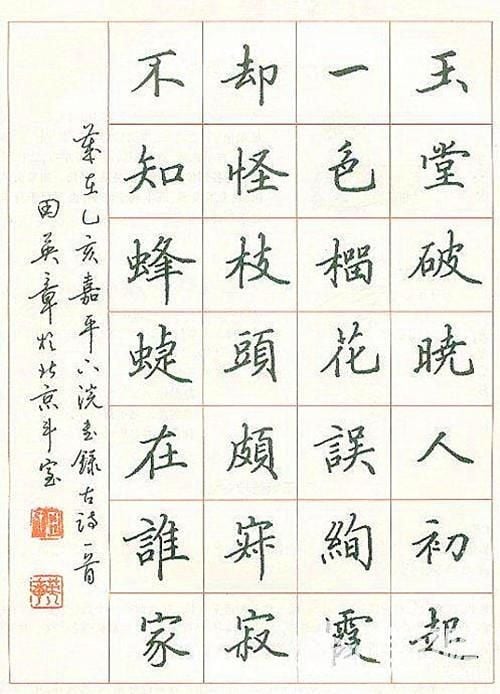 玉堂破曉人初起
一色榴花誤絢霞
却怪枝頭頗寂
不知蜂蝶在誰家
歲在乙亥嘉平下浣書錄古詩一首
田英章於北京斗室